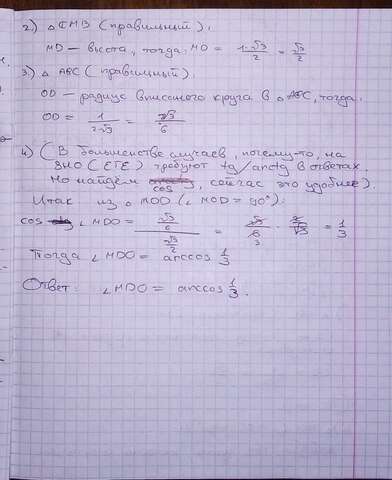 2) △ CMB (правильный).
MD — высота, тогда. MD = 1·√3/2 = √3/2
3.) △ ABC (правильный).
OD — радиус вписаного круга в △ABC, тогда.
OD = 1/2√3 = √3/6
4) (В большенстве случаев, почему-то, на
ЗНО (ЕГЕ) требуют tg/arctg в ответах.
Но найдём cos, сейчас это удобнее).
Итак из △ MOD (∠ MOD = 90°):
cos ∠ MDO = √3/6 / √3/2 = √3/6 · 2/√3 = 1/3
Тогда ∠ MDO = arccos 1/3
Ответ: ∠ MDO = arccos 1/3.